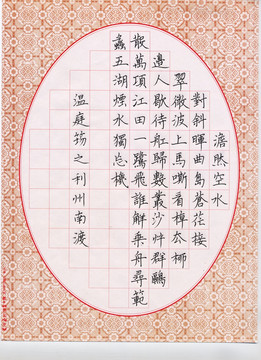 澹然空水
對斜暉曲島蒼茫接
翠微波上馬嘶看棹厺柳
邊人歇待船歸數叢沙艸群鷗
散萬項江田一鷺飛誰解乘舟尋範
蠡五湖煙水獨忘機
溫庭筠之利州南渡